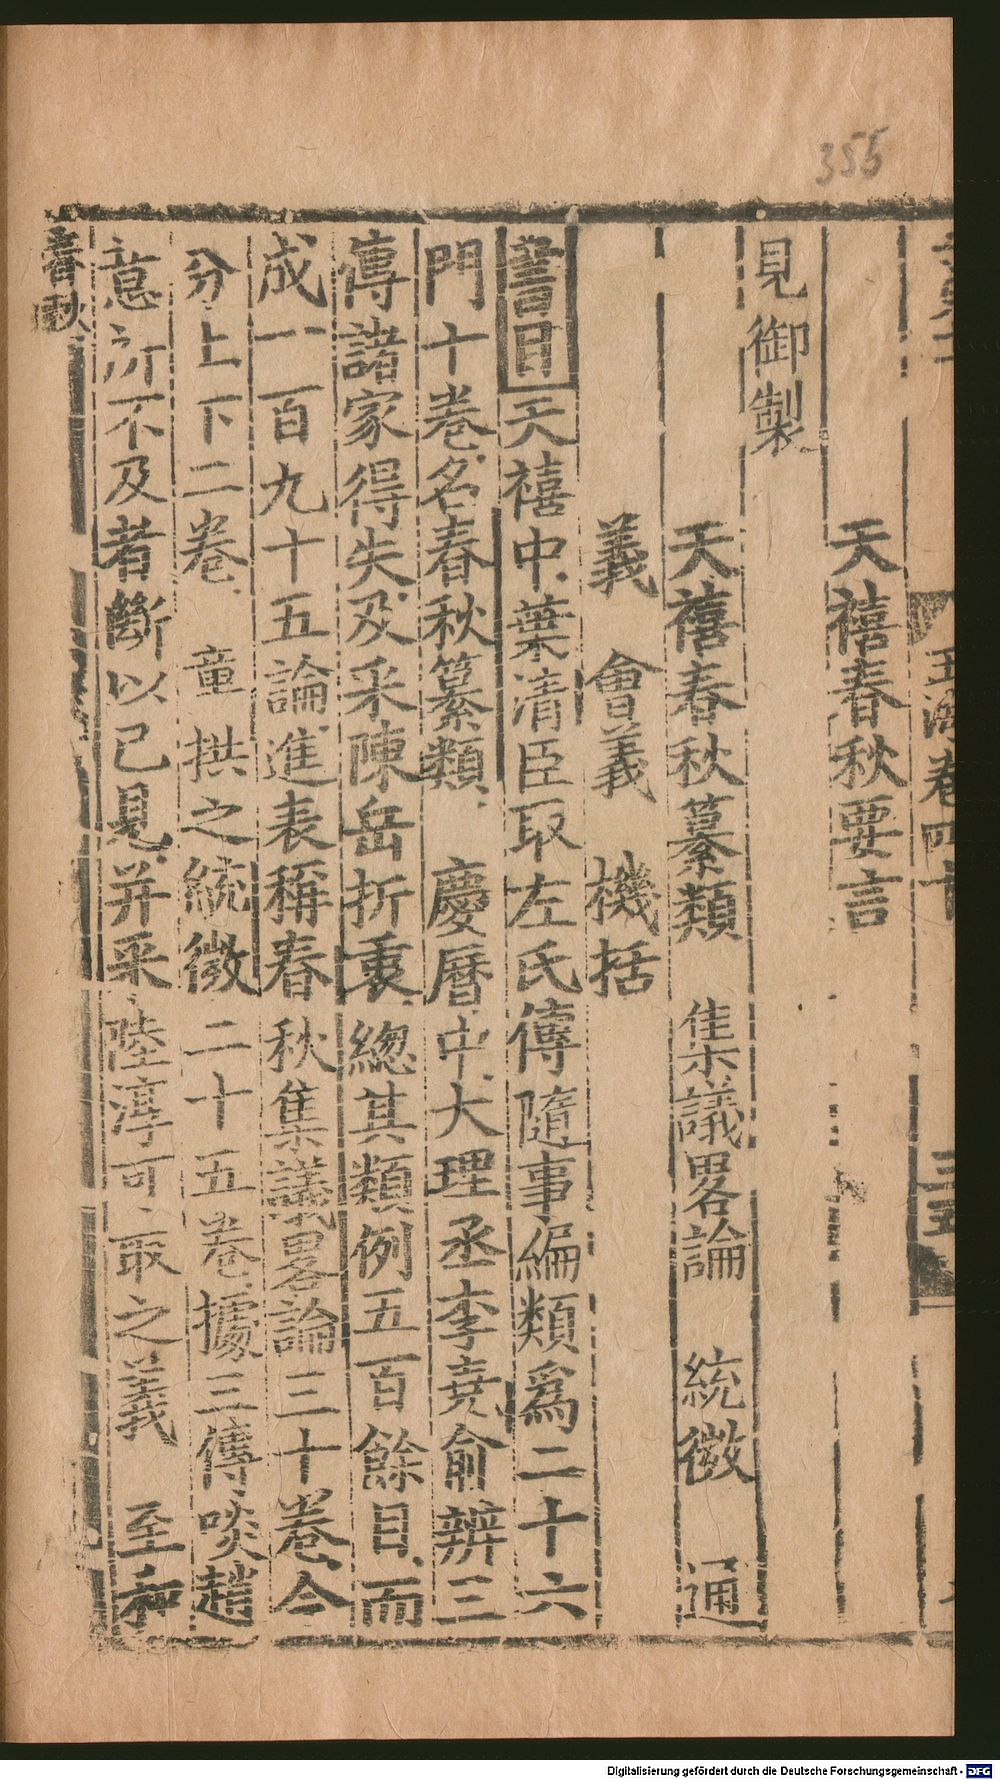 355
玉海卷四十
三五
天禧春秋要言
見御製
天禧春秋纂類　集議畧論　統微　通
義　會義　機括
書目天禧中葉清臣取左氏傳隨事編類爲二十六
門十卷名春秋纂類　慶曆中大理丞李堯俞辨三
傳諸家得失及采陳岳折衷總其類例五百餘目而
成一百九十五論進表稱春秋集議畧論三十卷今
分上下二卷　章拱之統微二十五卷據三傳啖趙
意所不及者斷以己見并采陸淳可取之義　至和
春秋
Digitalisierung gefördert durch die Deutsche Forschungsgemeinschaft - DFG